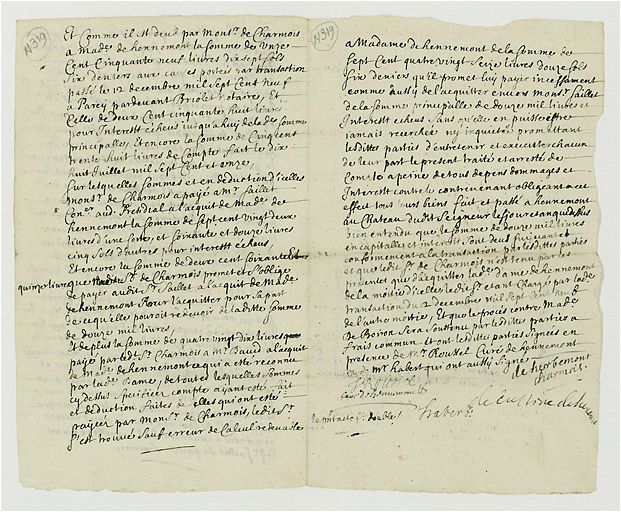 N319
Et Comme il est deub par Monsr. de Charmois
a Made. de hennemont la somme de Unze
Cent Cinquante neuf livres dix sept sols
six deniers aux causes portés par transaction
passé le 12 decembre mil sept Cent neuf
a Parey pardevant Briolet notaire, Et
Celle de deux Cent cinquante huit livres
pour Interest echeus jusqu'a huy de la de. somme
principalle, Et encore la somme de Cinq cent
trente huit livres de Compte fait le dix
huit Juillet mil sept Cent onze,
sur lesquelles sommes et en deduction d'icelles
monsr. de Charmois a payé a mr. Saillet
Coner. aud. Presidial a l'acquit de Made. de
hennemont la somme de sept cent vingt deux
livres d'une part, et soixante et douze livres
cinq sols d'autres pour interest echeus,
Et encore la somme de deux cent soixante
quinze livres que sr. de Charmois promet et s'oblige
de payer audit sr. Saillet a l'acquit de Made.
de hennemont pour l'acquitter pour sa part
de ce qu'elle pouroit redevoir de ladte somme
de douze mil livres,
Et de plus la somme de quatre vingt dix livres
payé par led. Sr. Charmois a mr. David a l'acquit
de Made. de hennemont ce qui a esté reconnu
par lade. Dame, de toutes lesquelles sommes
cy dessus specifiées compte ayant esté fait
et deduction faites de celles qui ont esté
payées par monsr. de Charmois, ledit sr.
s'est trouvé sauf erreur de Calcul redevable
N319
a Madame de hennemont de la somme de
sept Cent quatre vingt seize livres douze sols
six deniers qu'il promet luy payer incessament
comme aussy de l'acquitter envers monsr. Saillet
de la somme principalle de douze mil livres et
Interest echeus sans qu'elle en puisse estre
jamais recerchée ny inquietée promettant
lesdittes parties d'entretenir et executer chacun
de leur part le present traité et aretté de
Compte a peine de tous depens dommages et
Interest contre le contrevenant obligeant a cet
effect tous leurs biens fait et passé a hennemont
au Chateau dudit Seigneur les jours et an que dessus
bien entendu que la somme de douze mil livres
en capitalles et interest sont deus
conformement a la transaction par lesdittes parties
et que ledit sr. de Charmois n'est tenu par ces
presentes que d'acquitter lade. dame de hennemont
de la moitié d'icelles led. sr. estant Chargé par lade.
transaction du 12 decembre mil sept Cent neuf
de l'autre moitié, Et que le procès contre Made.
De Boiron sera soutenu par lesdittes parties a
frais commun. Et ont lesdittes parties signées en
presence de mr. Roussel Curé de hennemont
et de Mr. Rabert qui ont aussy Signé
de herbemont
charmois
Curé de hennemont
de Custine de
fait doubles
Rabert